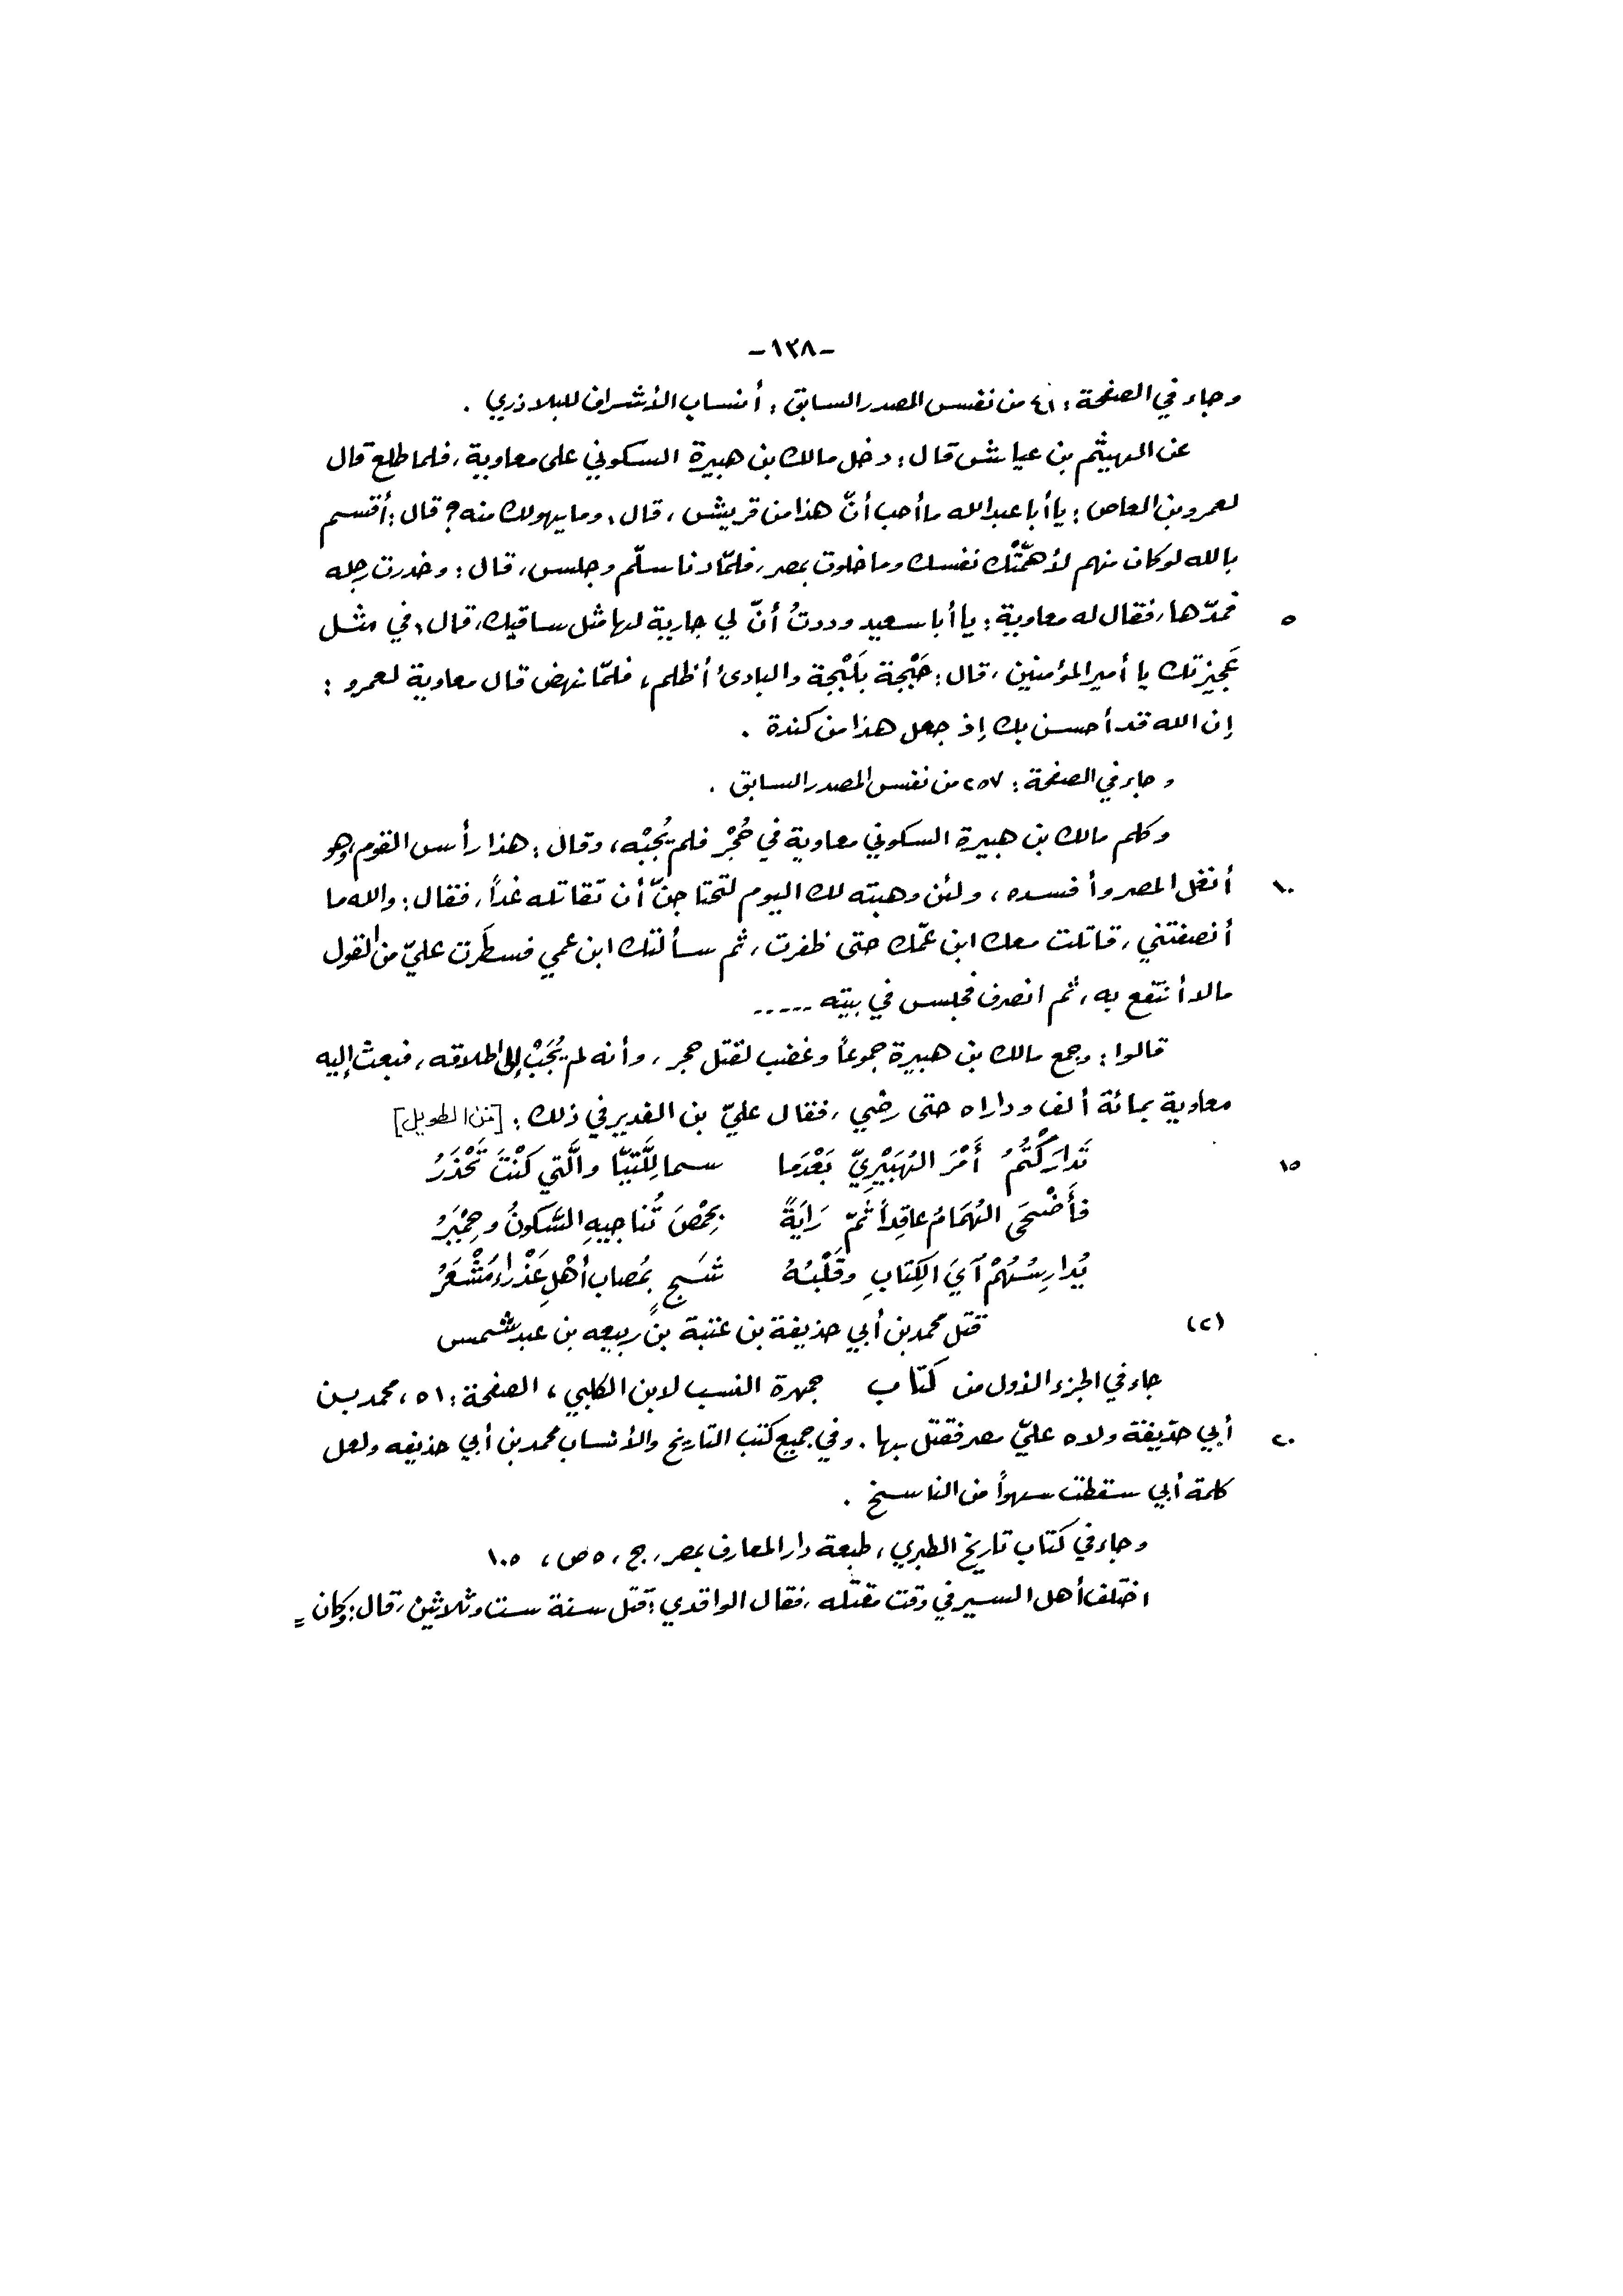 -١٣٨-
وجاء في الصفحة: ٤١ من نفس المصدر السابق: أنساب الأشراف للبلاذري.
عن الهيثم بن عياش قال: دخل مالك بن هبيرة السكوني على معاوية، فلما طلع قال
لعمرو بن العاص: يا أبا عبد الله ما أحب أنّ هذا من قريش، قال: وما يهولك منه؟ قال: أقسم
بالله لو كان منهم لأهمّتْك نفسك وما خلوت بمصر، فلمّا دنا سلّم وجلس، قال: وخدرت رجله
٥ فمدّها، فقال له معاوية: يا أبا سعيد وددتُ أنّ لي جارية لها مثل ساقيك، قال: في مثل
عَجيزتك يا أمير المؤمنين، قال: حَبْجة بَلَبْجة والبادئ أظلم، فلمّا نهض قال معاوية لعمرو:
إن الله قد أحسن بك إذ جعل هذا من كندة.
وجاء في الصفحة: ٢٥٧ من نفس المصدر السابق.
وكلم مالك بن هبيرة السكوني معاوية في حُجْر فلم يُجبْه، وقال: هذا رأس القوم، وهو
١٠ أنغل المصر وأفسده، ولئن وهبته لك اليوم لتحتاجنّ أن تقاتله غداً، فقال: والله ما
أنصفتني، قاتلت معك ابن عمّك حتى ظفرت، ثم سألتك ابن عمي فسطَرت عليّ من القول
مالا أنتفع به، ثم انصرف فجلس في بيته -----
قالوا: وجمع مالك بن هبيرة جموعاً وغضب لقتل حجر، وأنه لم يُجَبْ إلى إطلاقه، فبعث إليه
معاوية بمائة ألف وداراه حتى رضي، فقال عليّ بن الغدير في ذلك: [من الطويل]
١٥ تَدارَكْتُمُ أَمْرَ الهُبَيْرِيّ بَعْدَما سما لِلَّتَيّا والَّتي كنْتَ تَحْذَرُ
فأَضْحَى الهُمَامُ عاقِداً ثَمّ رَايَةً بِحِمْصَ تُناجيهِ السَّكونُ وحِمْيَرُ
يُدارِسُهُمْ آيَ الكِتَابِ وقَلْبُهُ شَجٍ بمُصاب أهْلِ عَذْراء مَشْعَرُ
(٢) قتل محمد بن أبي حذيفة بن عتبة بن ربيعه بن عبد شمس
جاء في الجزء الأول من كتاب جمهرة النسب لابن الكلبي، الصفحة: ٥١، محمد بن
٢٠ أبي حذيفة ولاه عليّ مصر فقتل بها. وفي جميع كتب التاريخ والأنساب محمد بن أبي حذيفه ولعل
كلمة أبي سقطت سهواً من الناسخ.
وجاء في كتاب تاريخ الطبري، طبعة دار المعارف بمصر، ج، ٥ ص، ١٠٥
اختلف أهل السير في وقت مقتله، فقال الواقدي: قتل سنة ست وثلاثين، قال: وكان =